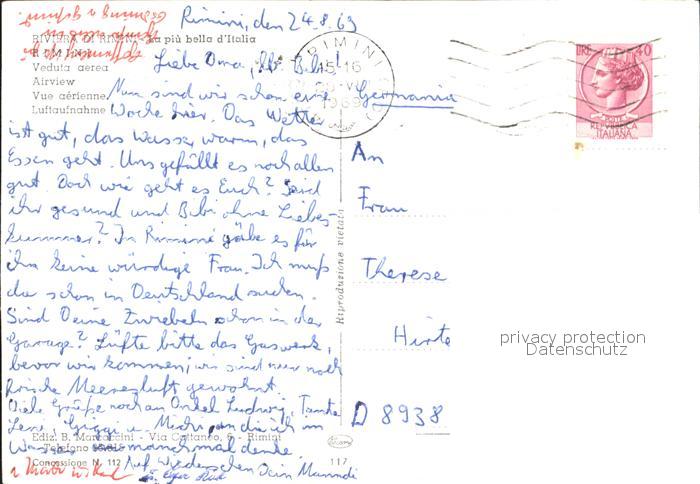 Rimini, den 24.8.69
RIVIERA DI RIMINI - La più bella d'Italia
RIMINI
Veduta aerea
Airview
Vue aérienne
Luftaufnahme
RIMINI
15-16
1969
LIRE 40
POSTE
REPUBBLICA
ITALIANA
Liebe Oma, lb. Bibi!
Nun sind wir schon eine
Woche hier. Das Wetter
ist gut, das Wasser warm, das
Essen geht. Uns gefällt es noch allen
gut. Doch wie geht es Euch? Seid
ihr gesund und Bibi ohne Liebes-
kummer? In Rimini gäbe es für
ihn keine würdige Frau. Ich muß
da schon in Deutschland suchen.
Sind Deine Zwiebeln schon in der
Garage? Lüfte bitte das Gaswerk,
bevor wir kommen; wir sind nur noch
frische Meeresluft gewohnt.
Viele Grüße noch an Onkel Ludwig, Tante
an die ich im
Wasser manchmal denke.
Auf Wiedersehen Dein Manndi
Germania
An
Frau
Therese
Hirte
D 8938
Riproduzione vietata
privacy protection
Datenschutz
Ediz. B. Marcaccini - Via Cattaneo, 6 - Rimini
Telefono
Concessione N. 112
117